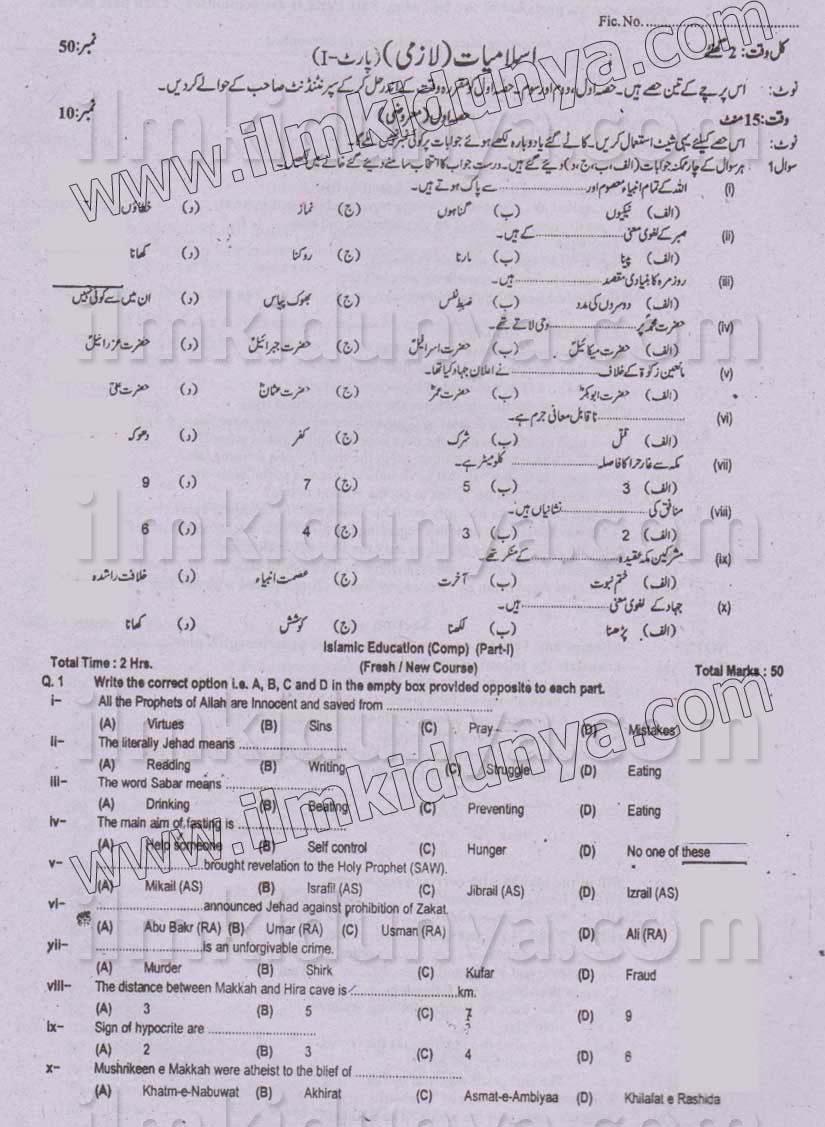 Fic. No.
کل وقت: 2 گھنٹے اسلامیات (لازمی) (پارٹ-I) نمبر:50
نوٹ: اس پرچے کے تین حصے ہیں۔ حصہ اول، دوم اور سوم۔ حصہ اول کو مقررہ وقت کے اندر حل کر کے سپرنٹنڈنٹ صاحب کے حوالے کر دیں۔
وقت: 15 منٹ حصہ اول (معروضی) نمبر:10
نوٹ: اس حصے کیلئے یہی شیٹ استعمال کریں۔ کاٹے گئے یا دوبارہ لکھے ہوئے جوابات پر کوئی نمبر نہیں ملے گا۔
سوال 1 ہر سوال کے چار ممکنہ جوابات (الف، ب، ج، د) دیئے گئے ہیں۔ درست جواب کا انتخاب سامنے دیئے گئے خانے میں لکھیئے۔
(i) اللہ کے تمام انبیاء معصوم اور .................. سے پاک ہوتے ہیں۔
(الف) نیکیوں (ب) گناہوں (ج) نماز (د) خطاؤں
(ii) صبر کے لغوی معنی .................. کے ہیں۔
(الف) پینا (ب) مارنا (ج) روکنا (د) کھانا
(iii) روزمرہ کا بنیادی مقصد .................. ہیں۔
(الف) دوسروں کی مدد (ب) ضبط نفس (ج) بھوک پیاس (د) ان میں سے کوئی نہیں
(iv) حضرت محمدؐ پر .................. وحی لاتے تھے۔
(الف) حضرت میکائیلؑ (ب) حضرت اسرافیلؑ (ج) حضرت جبرائیلؑ (د) حضرت عزرائیلؑ
(v) مانعین زکوٰۃ کے خلاف .................. نے اعلان جہاد کیا تھا۔
(الف) حضرت ابوبکرؓ (ب) حضرت عمرؓ (ج) حضرت عثمانؓ (د) حضرت علیؓ
(vi) .................. ناقابل معافی جرم ہے۔
(الف) قتل (ب) شرک (ج) کفر (د) دھوکہ
(vii) مکہ سے غار حرا کا فاصلہ .................. کلومیٹر ہے۔
(الف) 3 (ب) 5 (ج) 7 (د) 9
(viii) منافق کی .................. نشانیاں ہیں۔
(الف) 2 (ب) 3 (ج) 4 (د) 6
(ix) مشرکین مکہ عقیدہ .................. کے منکر تھے
(الف) ختم نبوت (ب) آخرت (ج) عصمت انبیاء (د) خلافت راشدہ
(x) جہاد کے لغوی معنی .................. ہیں۔
(الف) پڑھنا (ب) لکھنا (ج) کوشش (د) کھانا
Islamic Education (Comp) (Part-I)
Total Time : 2 Hrs. (Fresh / New Course) Total Marks : 50
Q. 1 Write the correct option i.e. A, B, C and D in the empty box provided opposite to each part.
i– All the Prophets of Allah are Innocent and saved from ..................
(A) Virtues (B) Sins (C) Pray (D) Mistakes
ii– The literally Jehad means ..................
(A) Reading (B) Writing (C) Struggle (D) Eating
iii– The word Sabar means ..................
(A) Drinking (B) Beating (C) Preventing (D) Eating
iv– The main aim of fasting is ..................
(A) Help someone (B) Self control (C) Hunger (D) No one of these
v– ..................brought revelation to the Holy Prophet (SAW).
(A) Mikail (AS) (B) Israfil (AS) (C) Jibrail (AS) (D) Izrail (AS)
vi– ..................announced Jehad against prohibition of Zakat.
(A) Abu Bakr (RA) (B) Umar (RA) (C) Usman (RA) (D) Ali (RA)
yii– ..................is an unforgivable crime.
(A) Murder (B) Shirk (C) Kufar (D) Fraud
viii– The distance between Makkah and Hira cave is ..................km.
(A) 3 (B) 5 (C) 7 (D) 9
ix– Sign of hypocrite are ..................
(A) 2 (B) 3 (C) 4 (D) 6
x– Mushrikeen e Makkah were atheist to the blief of ..................
(A) Khatm-e-Nabuwat (B) Akhirat (C) Asmat-e-Ambiyaa (D) Khilafat e Rashida
www.ilmkidunya.com
ilmkidunya.com
ilmkidunya.com
ilmkidunya.com
www.ilmkidunya.com
ilmkidunya.com